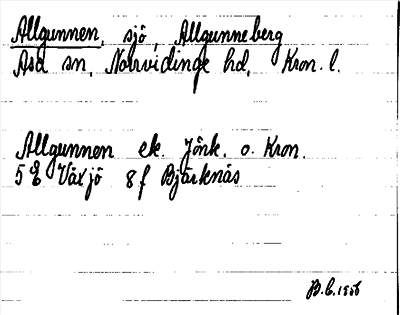 Allgunnen, sjö, Allgunneberg
Asa sn, Norrvidinge hd, Kron. l.
Allgunnen ek. Jönk. o. Kron.
5 E Växjö 8 f Bjärknäs
B.C. 1956